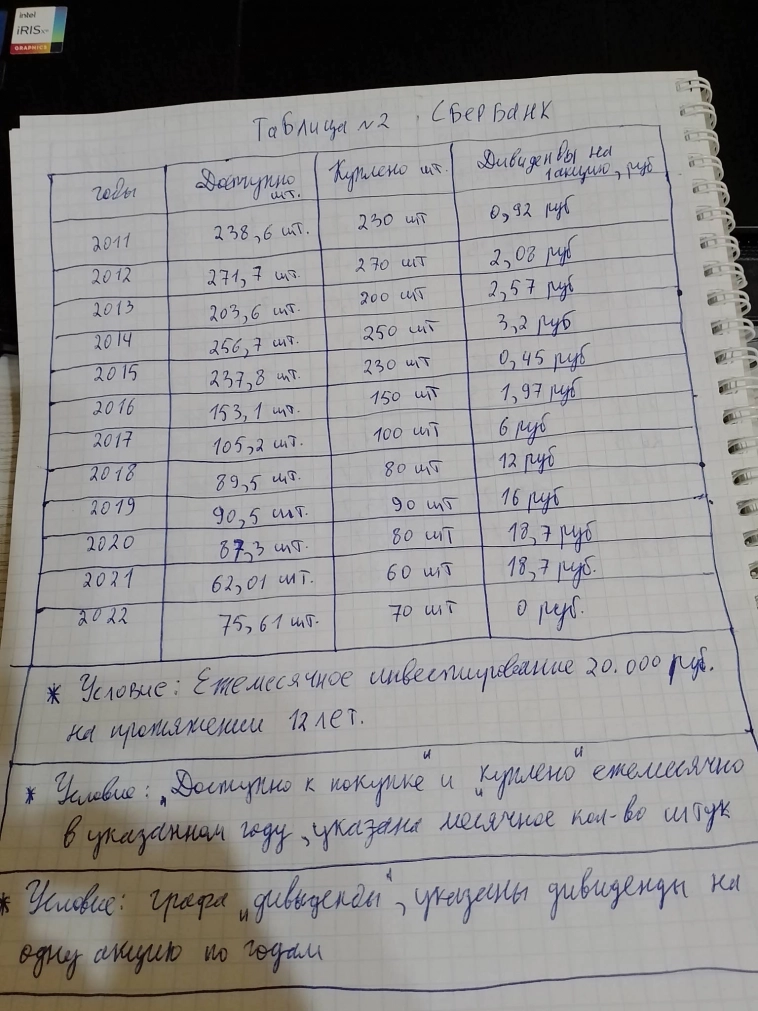 intel
iRIS Xe
GRAPHICS
Таблица №2 СБЕРБАНК
годы Доступно шт. Куплено шт. Дивиденды на 1 акцию, руб
2011 238,6 шт. 230 шт 0,92 руб
2012 271,7 шт. 270 шт 2,08 руб
2013 203,6 шт. 200 шт 2,57 руб
2014 256,7 шт. 250 шт 3,2 руб
2015 237,8 шт. 230 шт 0,45 руб
2016 153,1 шт. 150 шт 1,97 руб
2017 105,2 шт. 100 шт 6 руб
2018 89,5 шт. 80 шт 12 руб
2019 90,5 шт. 90 шт 16 руб
2020 87,3 шт. 80 шт 18,7 руб
2021 62,01 шт. 60 шт 18,7 руб.
2022 75,61 шт. 70 шт 0 руб.
* Условие: Ежемесячное инвестирование 20.000 руб.
на протяжении 12 лет.
* Условие: „Доступно к покупке" и „куплено" ежемесячно
в указанном году, указана месячное кол-во штук
* Условие: графа „дивиденды", указаны дивиденды на
одну акцию по годам